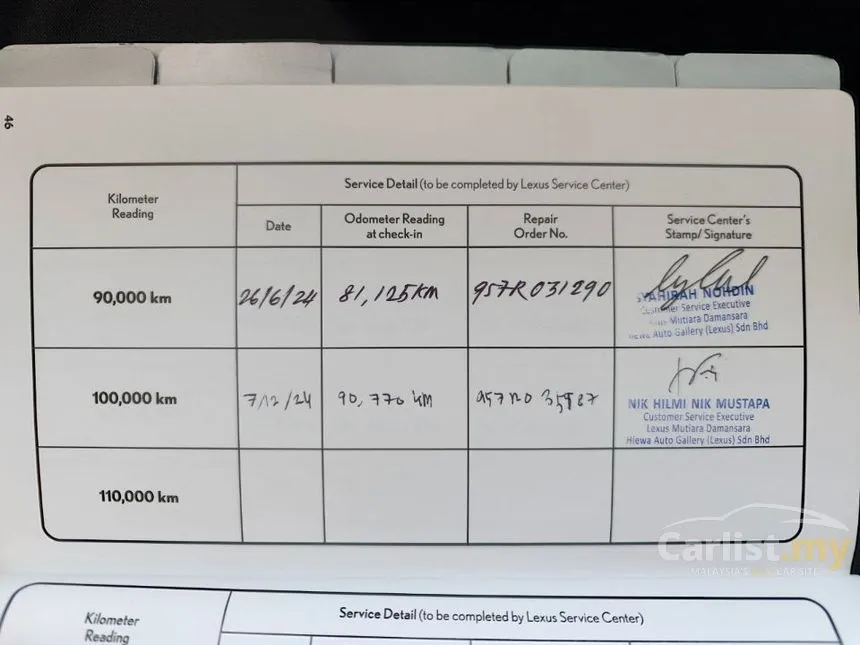 46
Kilometer
Reading
Service Detail (to be completed by Lexus Service Center)
Date
Odometer Reading
at check-in
Repair
Order No.
Service Center's
Stamp/ Signature
90,000 km
26/6/24
81,125KM
957R031290
SYAHIRAH NOHDIN
Customer Service Executive
Mutiara Damansara
Hiewa Auto Gallery (Lexus) Sdn Bhd
100,000 km
7/12/24
90,770 km
NIK HILMI NIK MUSTAPA
Customer Service Executive
Lexus Mutiara Damansara
Hiewa Auto Gallery (Lexus) Sdn Bhd
110,000 km
Carlist.my
MALAYSIA'S CAR SITE
Kilometer
Reading
Service Detail (to be completed by Lexus Service Center)